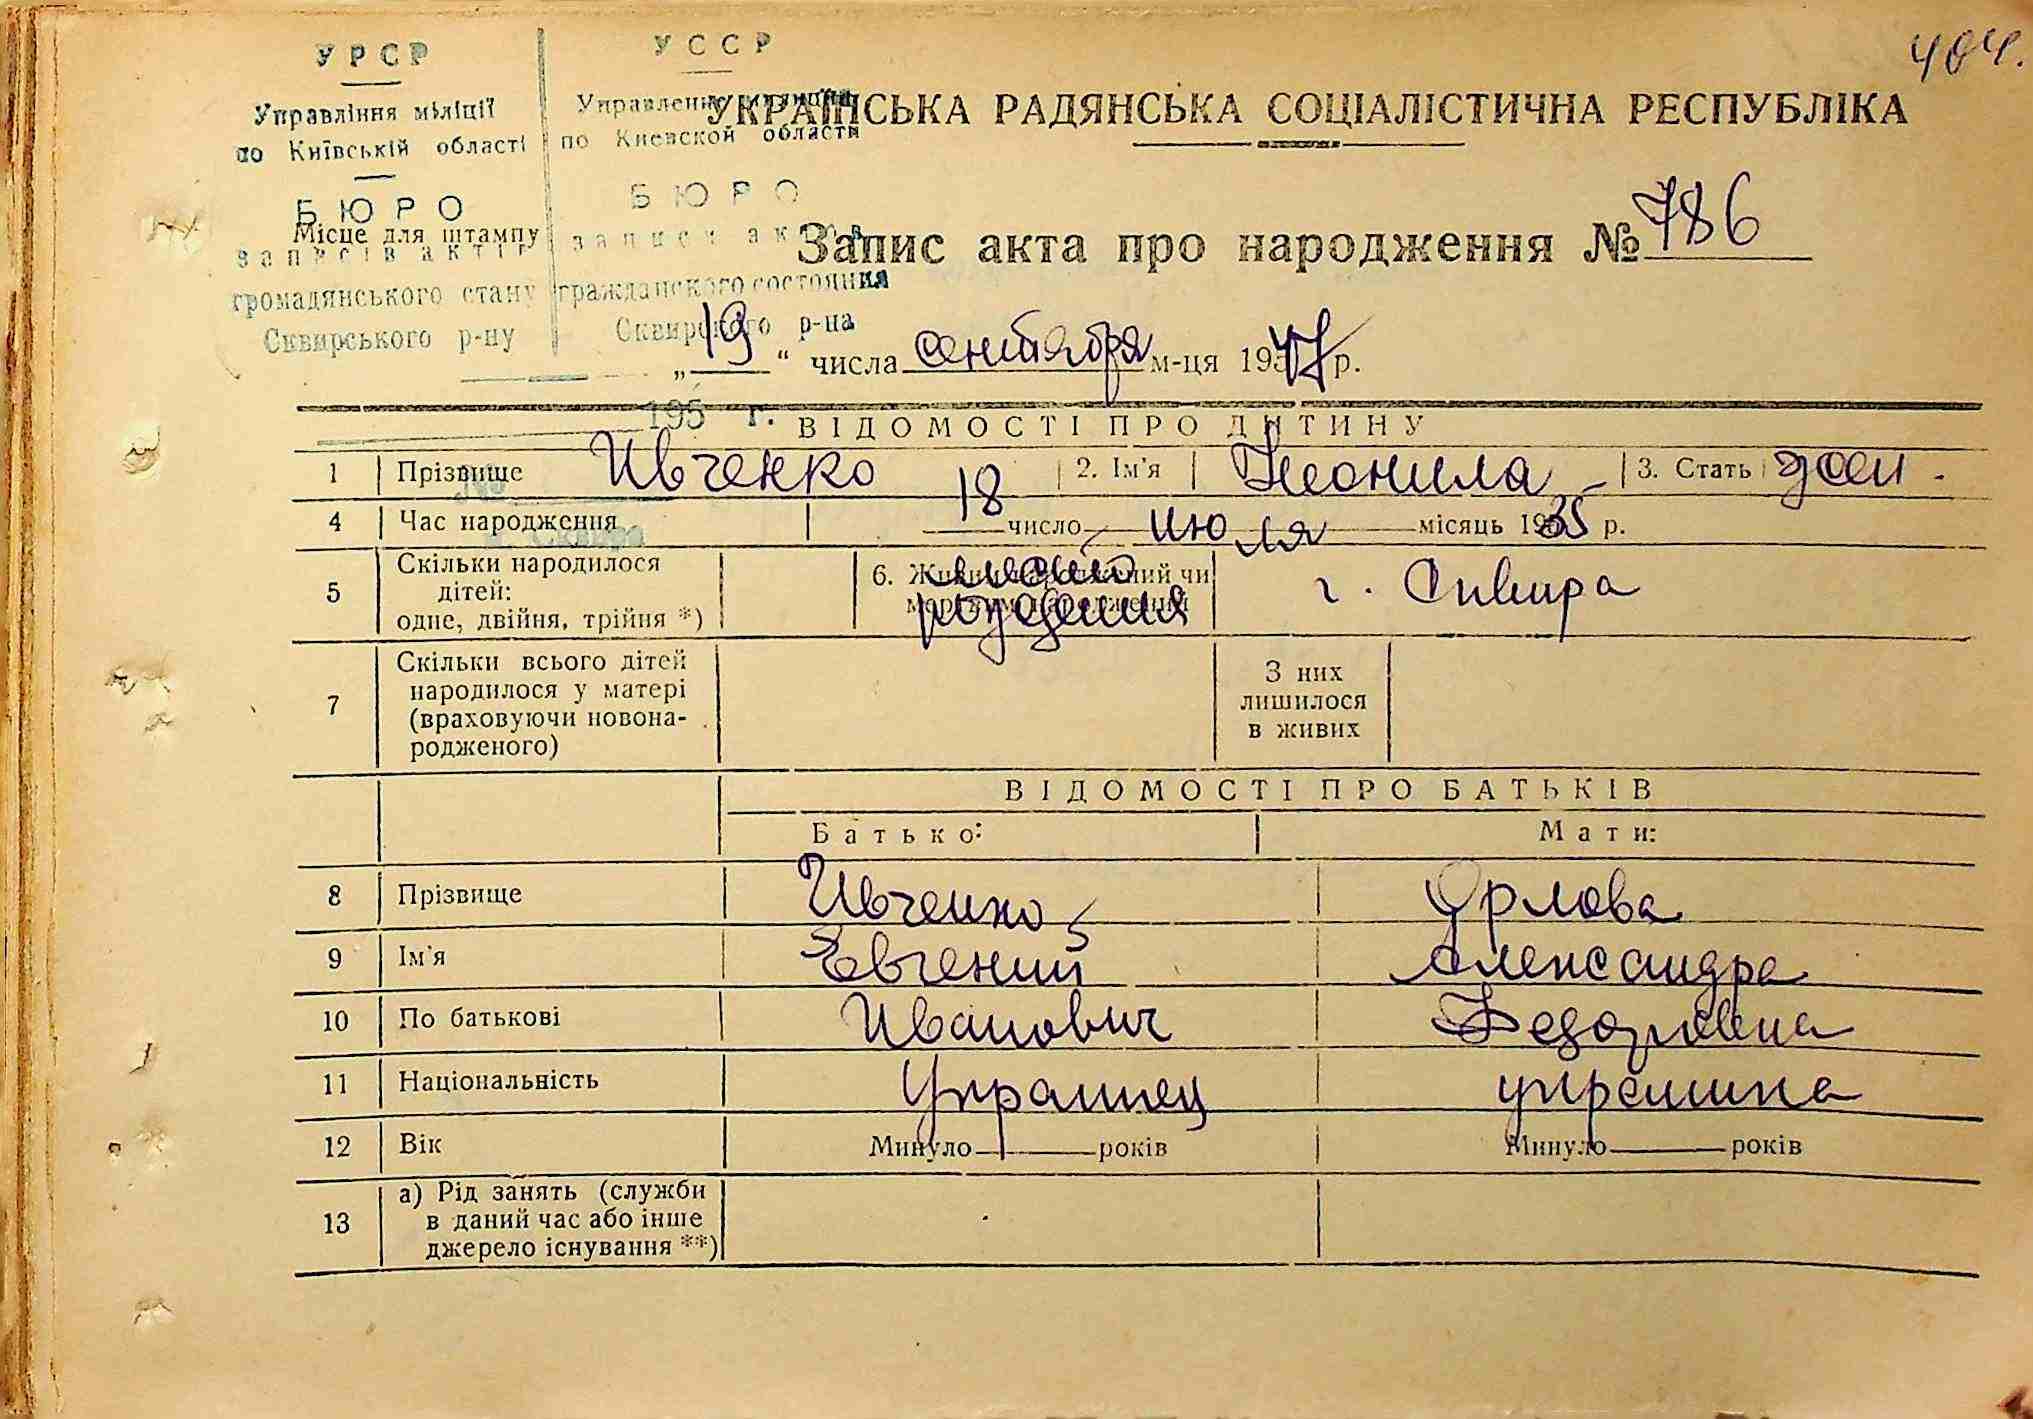 404.
УРСР
Управління міліції
по Київській області
БЮРО
записів актів
громадянського стану
Сквирського р-ну
УССР
Управление милиции
по Киевской области
БЮРО
записи актов
гражданского состояния
Сквирского р-на
195 г.
№
Сквира
УКРАЇНСЬКА РАДЯНСЬКА СОЦІАЛІСТИЧНА РЕСПУБЛІКА
Місце для штампу
Запис акта про народження № 786
„19“ числа сентября м-ця 1947 р.
ВІДОМОСТІ ПРО ДИТИНУ
1 Прізвище Ивченко 2. Ім'я Неонила 3. Стать жен.
4 Час народження 18 число июля місяць 1935 р.
5 Скільки народилося
дітей:
одне, двійня, трійня *)
6. Живим народжений чи
мертвим народжений
место
рождения
г. Сквира
7 Скільки всього дітей
народилося у матері
(враховуючи новона-
родженого)
З них
лишилося
в живих
ВІДОМОСТІ ПРО БАТЬКІВ
Батько: Мати:
8 Прізвище Ивченко Орлова
9 Ім'я Евгений Александра
10 По батькові Иванович Федоровна
11 Національність Украинец украинка
12 Вік Минуло років Минуло років
13 а) Рід занять (служби
в даний час або інше
джерело існування **)